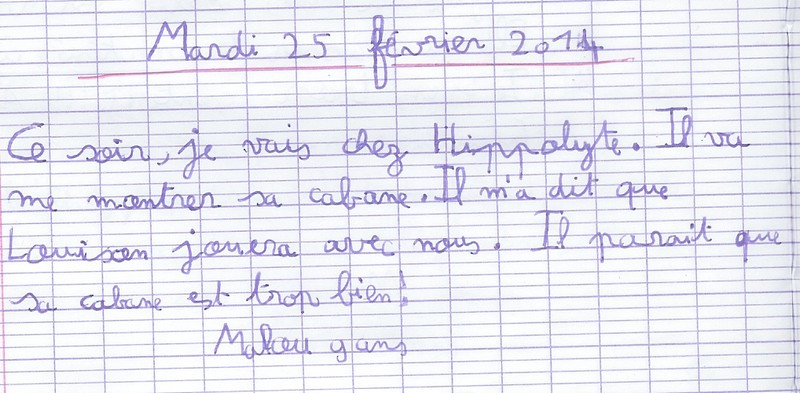 Mardi 25 février 2014
Ce soir, je vais chez Hippolyte. Il va
me montrer sa cabane. Il m'a dit que
Louison jouera avec nous. Il parait que
sa cabane est trop bien!
9 ans